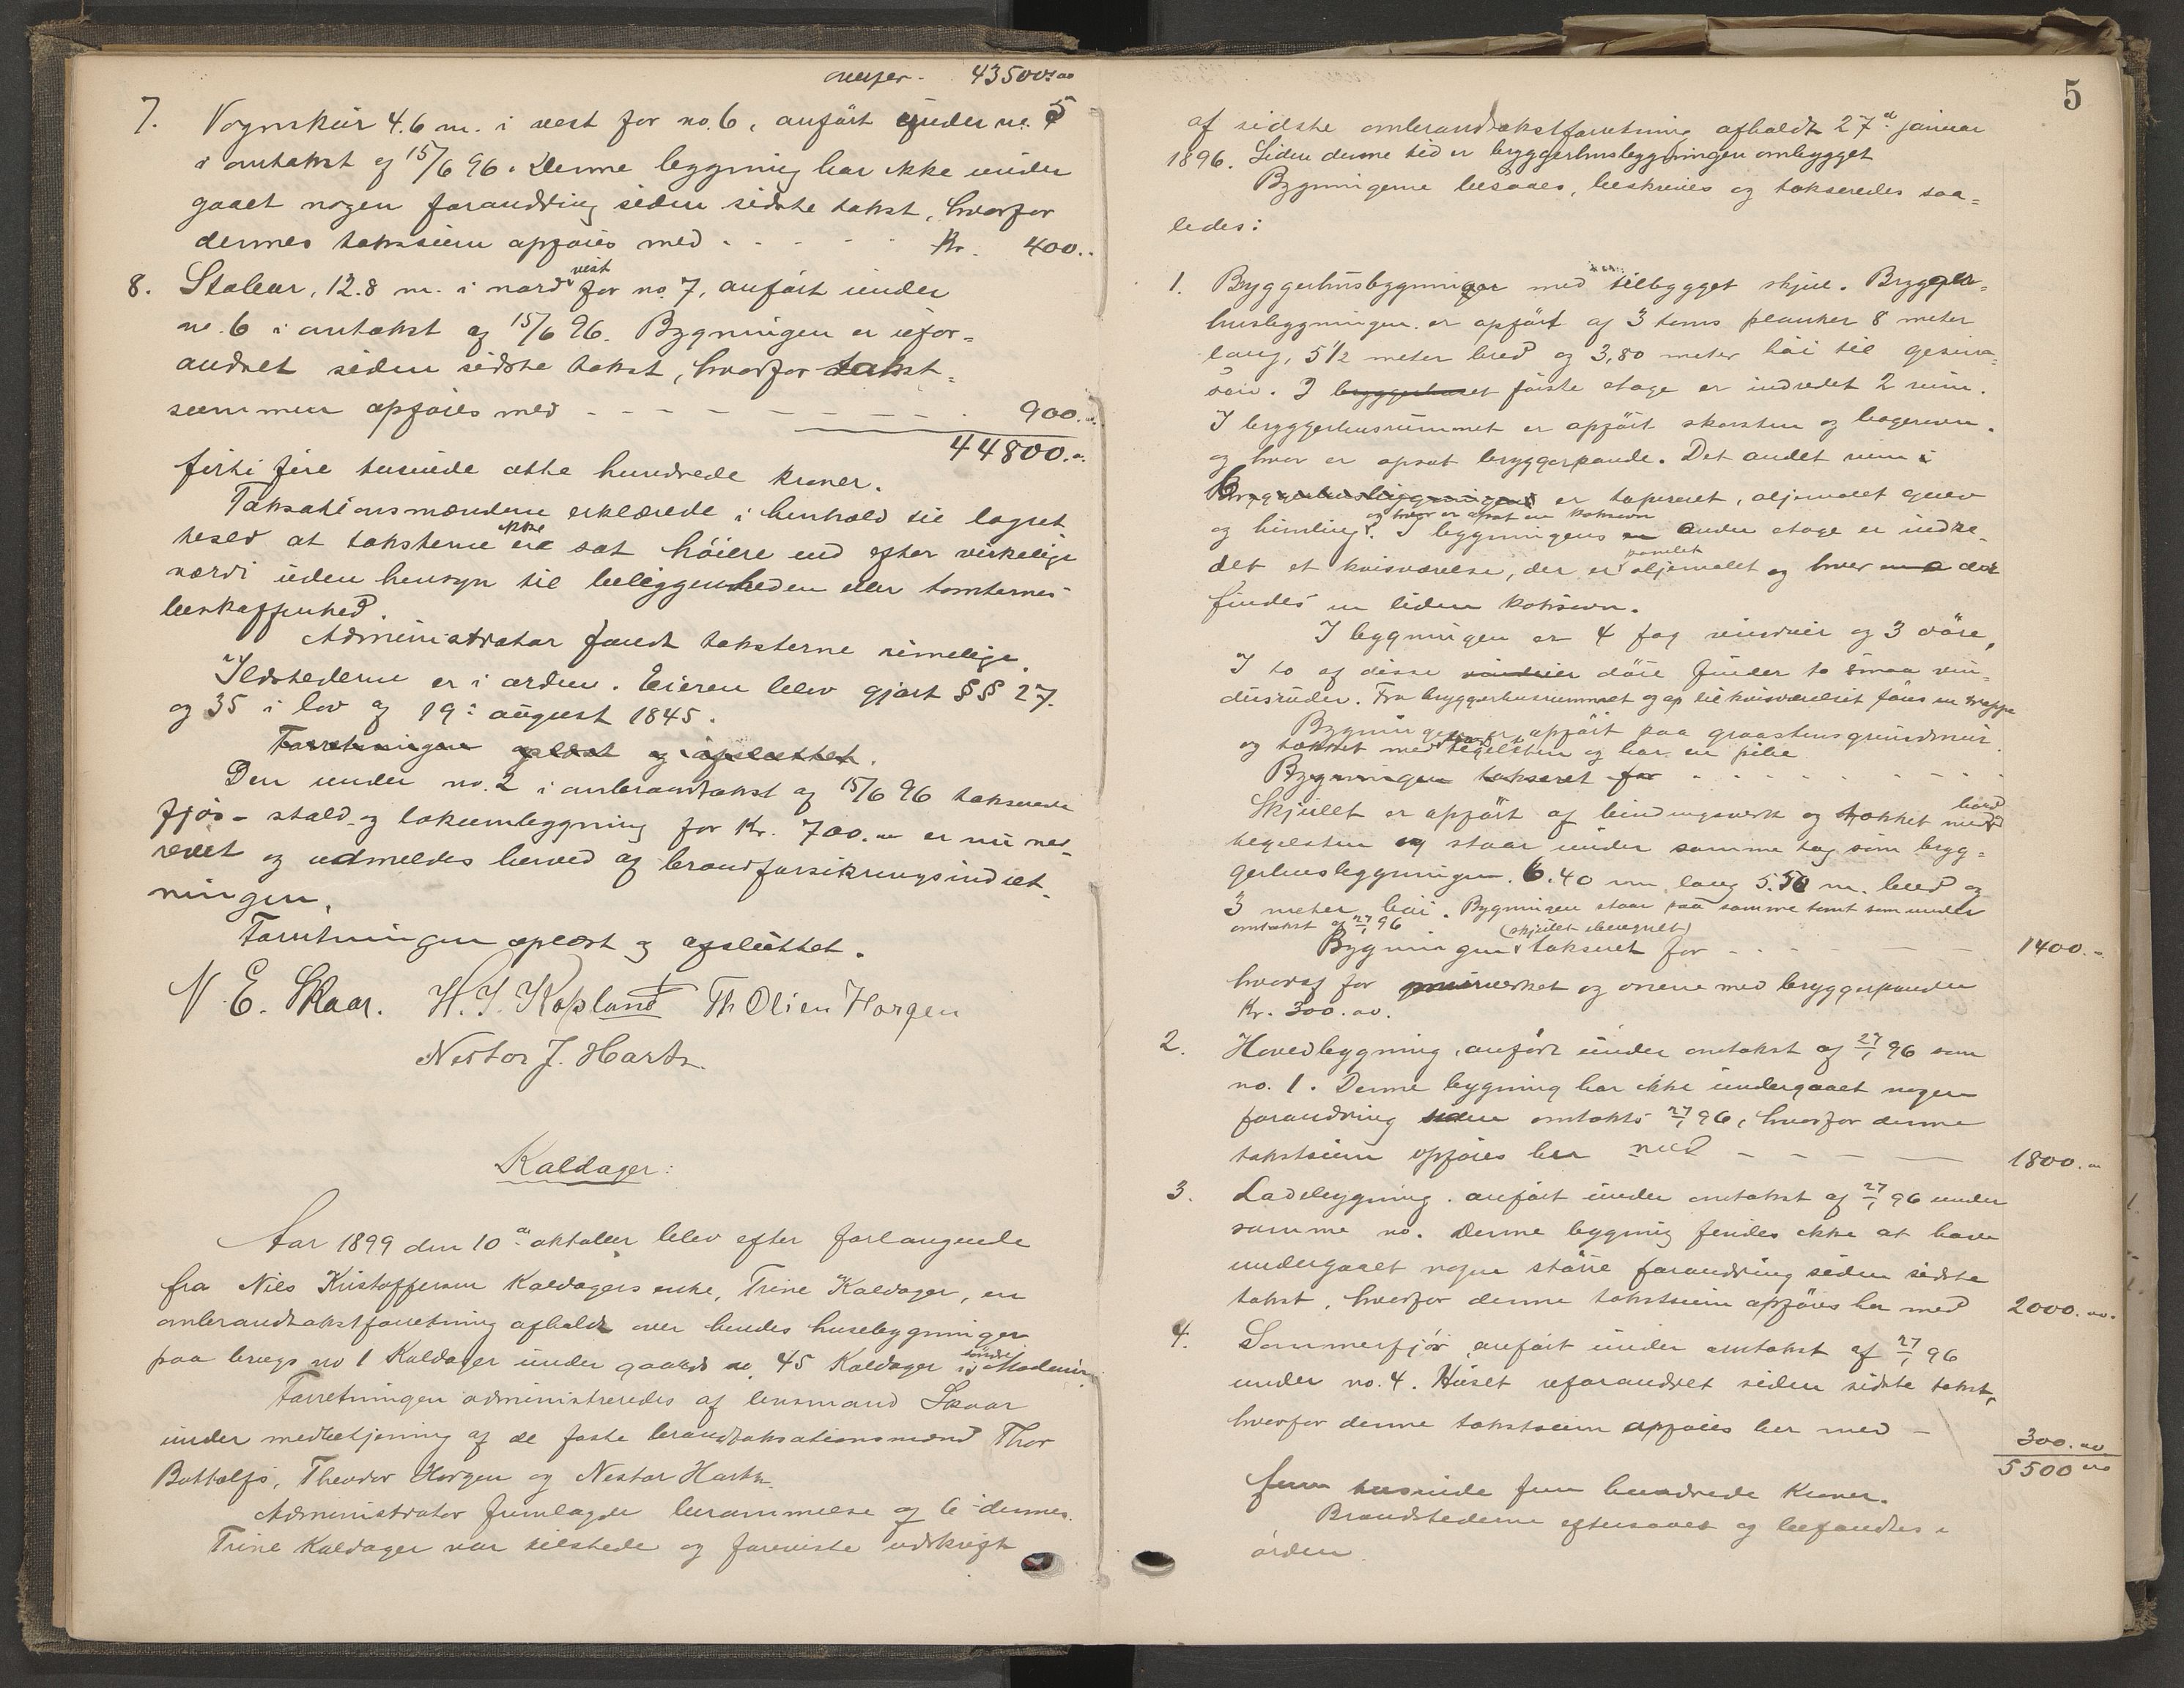 overför. 43500.00
7. Vognskür 4.6 m. i vest for no. 6, anfört ünder no. 5
i omtakst af 15/6 96. Denne bygning har ikke under
gaaet nogen forandring siden sidste takst, hvorfor
dennes takstsüm opföies med - - - - - Kr. 400..
8. Stabur, 12.8 m. i nord vest for no. 7, anfört ünder
no. 6 i omtakst af 15/6 96. Bygningen er üfor=
andret siden sidste takst, hvorfor takst=
summen opföies med - - - - - - - - 900..
44800..
firti fire tusinde otte hundrede kroner.
Taksationsmændene erklærede i henhold til laget
hesed at taksterne ikke er sat höiere end efter virkelige
værdi üden hensyn til beliggenheden eller tomternes
beskaffenhed.
Administrator fandt taksterne rimelige.
Ildstederne er i orden. Eieren blev gjort §§ 27.
og 35 i lov af 19: august 1845.
Forretningen oplæst og afsluttet.
Den under no. 2 i ombrandtakst af 15/6 96 takserede
fjös- stald- og lokumbygning for Kr. 700.00 er nü ned-
revet og udmeldes herved af brandforsikringsindret-
ningen.
Forretningen oplæst og afslüttet.
N. E. Skaar. H. J. Kopland Th Olsen Horgen
Nestor J. Hartz.
Kaldager:
Aar 1899 den 10de oktober blev efter forlangende
fra Nils Kristoffersen Kaldagers enke, Trine Kaldager, en
ombrandtakstforretning afholdt over hendes husebygninger
paa brugs no 1 Kaldager ünder gaards no. 45 Kaldager i
Forretningen administreredes af lensmand Skaar
ünder medbetjening af de faste brandtaksationsmænd Thor
Bottolfs, Theodor Horgen og Nestor Hartz.
Administrator fremlagde berammelse af 6 dennes.
Trine Kaldager var tilstede og foreviste udskrift
5
af sidste ombrandtakstforretning afholdt 27de januar
1896. Siden denne tid er bryggerhusbygningen ombygget
Bygningerne besaaes, beskreves og takseredes saa=
ledes:
1. Bryggerhüsbygningen med tilbygget skjul. Brygger=
husbygningen er opfört af 3 toms planker 8 meter
lang, 5 1/2 meter bred og 3,80 meter höi til gesims=
öau. I bryggerhuset förste etage er indredet 2 rüm.
I bryggerhusrümmet er opfört skorsten og bagerovn.
og hvor er opsat bryggerpande. Det andet rüm i
Bryggerhusbygningens er tapeseret, oljemalet gulv
og himling og hvor er opsat en kokovn. I bygningens anden etage er indre-
det et kvisværelse, der er panelet oljemalet og hvor der
findes en liden kokovn.
I bygningen er 4 fag vindüer og 3 döre,
I to af disse vindüer döre finder to smaa vin-
düsrüder. Fra bryggerhusrummet og op til kvisværelset föres en trappe
Bygningen er opfört paa graastensgründmür.
og tækket med tegelsten og har en pibe
Bygningen takseret for - - - - - - - -
Skjület er opfört af bindingsverk og tækket med
tegelsten og staar ünder samme tag som bryg=
gerhusbygningen. 6.40 m lang 5.50 m. bred og
3 meter höi. Bygningen staar paa samme tomt som ünder
omtakst af 27/1 96
Bygningen (skjület iberegnet) takseret for - - - - - 1400.-
hvoraf for mürverket og ovene med bryggerpanden
Kr. 300.00.
2. Hovedbygning, anfört ünder omtakst af 27/1 96 som
no. 1. Denne bygning har ikke ündergaaet nogen
forandring siden omtakst 27/1 96, hvorfor denne
takstsüm opföres her med - - - - 1800.00
3. Ladebygning, anfört ünder omtakst af 27/1 96 under
samme no. Denne bygnig findes ikke at have
undergaaet nogen större forandring siden sidste
takst, hvorfor denne takstsüm opföres her med 2000.00.
4. Sommerfjös anfört ünder omtakst af 27/1 96
under no. 4. Hüset uforandret siden sidste takst,
hvorfor denne takstsüm opföies her med - 300.00
5500 00
fem tusinde fem hundrede Kroner.
Brandstederne eftersaaes og befandtes i
orden.